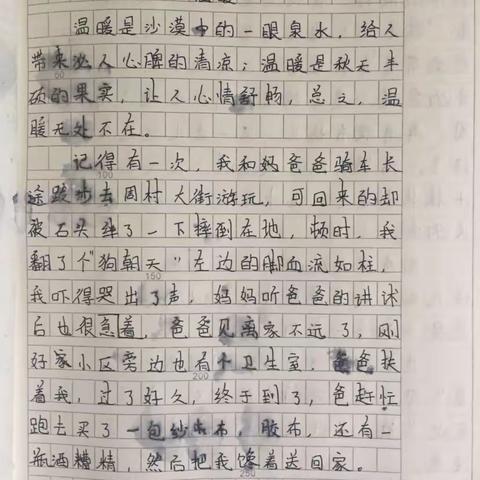 温暖是沙漠中的一眼泉水，给人
带来沁人心脾的清凉；温暖是秋天丰
硕的果实，让人心情舒畅，总之，温
暖无处不在。
记得有一次，我和妈爸爸骑车长
途跋涉去周村大街游玩，可回来的却
被石头绊了一下摔倒在地，顿时，我
翻了个"狗朝天"左边的脚血流如柱，
我吓得哭出了声，妈妈听爸爸的讲述
后也很急着，爸爸见离家不远了，刚
好家小区旁边也有个卫生室，爸爸扶
着我，过了好久，终于到了，爸赶忙
跑去买了一包纱布，胶布，还有一
瓶酒糟精，然后把我搀着送回家。
100
150
200
250